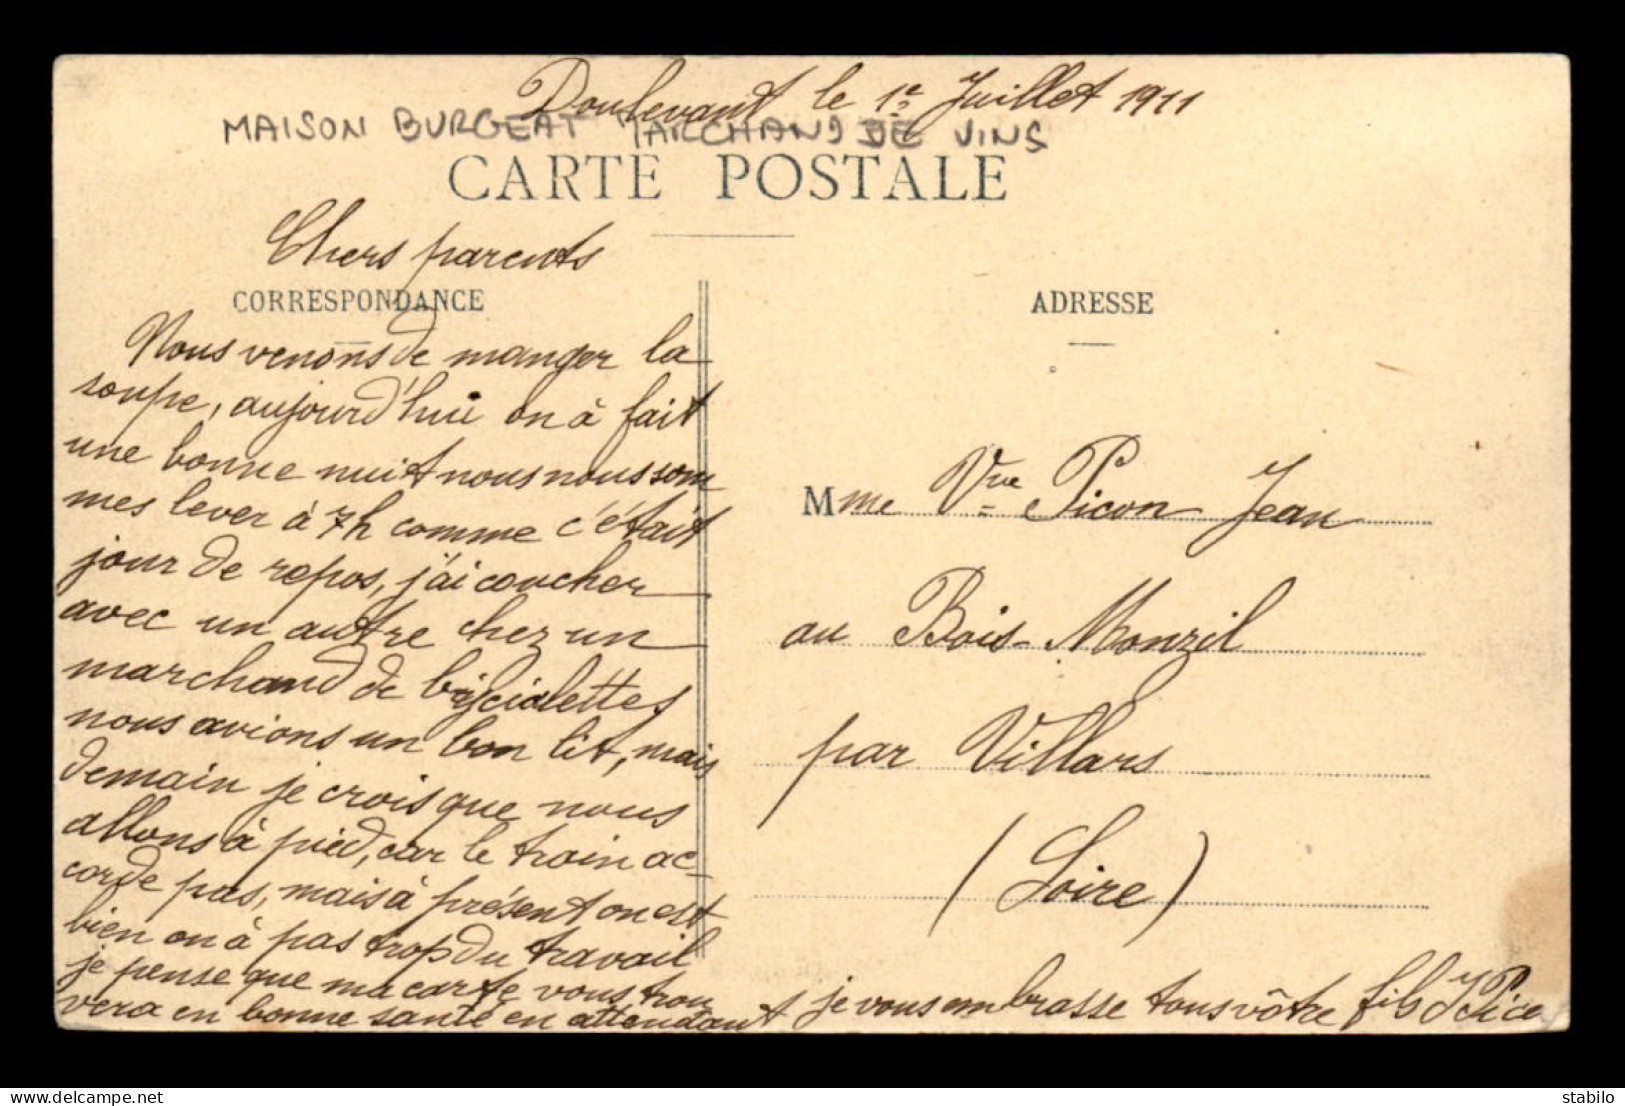 Doulevant le 1e Juillet 1911
MAISON BURGEAT MARCHAND DE VINS
CARTE POSTALE
Chers parents
CORRESPONDANCE
Nous venons de manger la
soupe, aujourd'hui on à fait
une bonne nuit nous nous som
mes lever à 7h comme c'était
jour de repos, j'ai coucher
avec un autre chez un
marchand de byciclettes
nous avions un bon lit, mais
demain je crois que nous
allons à pied, car le train ac-
corde pas, mais à présent on est
bien on à pas trop du travail
je pense que ma carte vous trou
vera en bonne santé en attendant je vous embrasse tous vôtre fils J Picon
ADRESSE
Mme Vve Picon Jean
au Bois-Monzil
par Villars
(Loire)
delcampe.net
stabilo